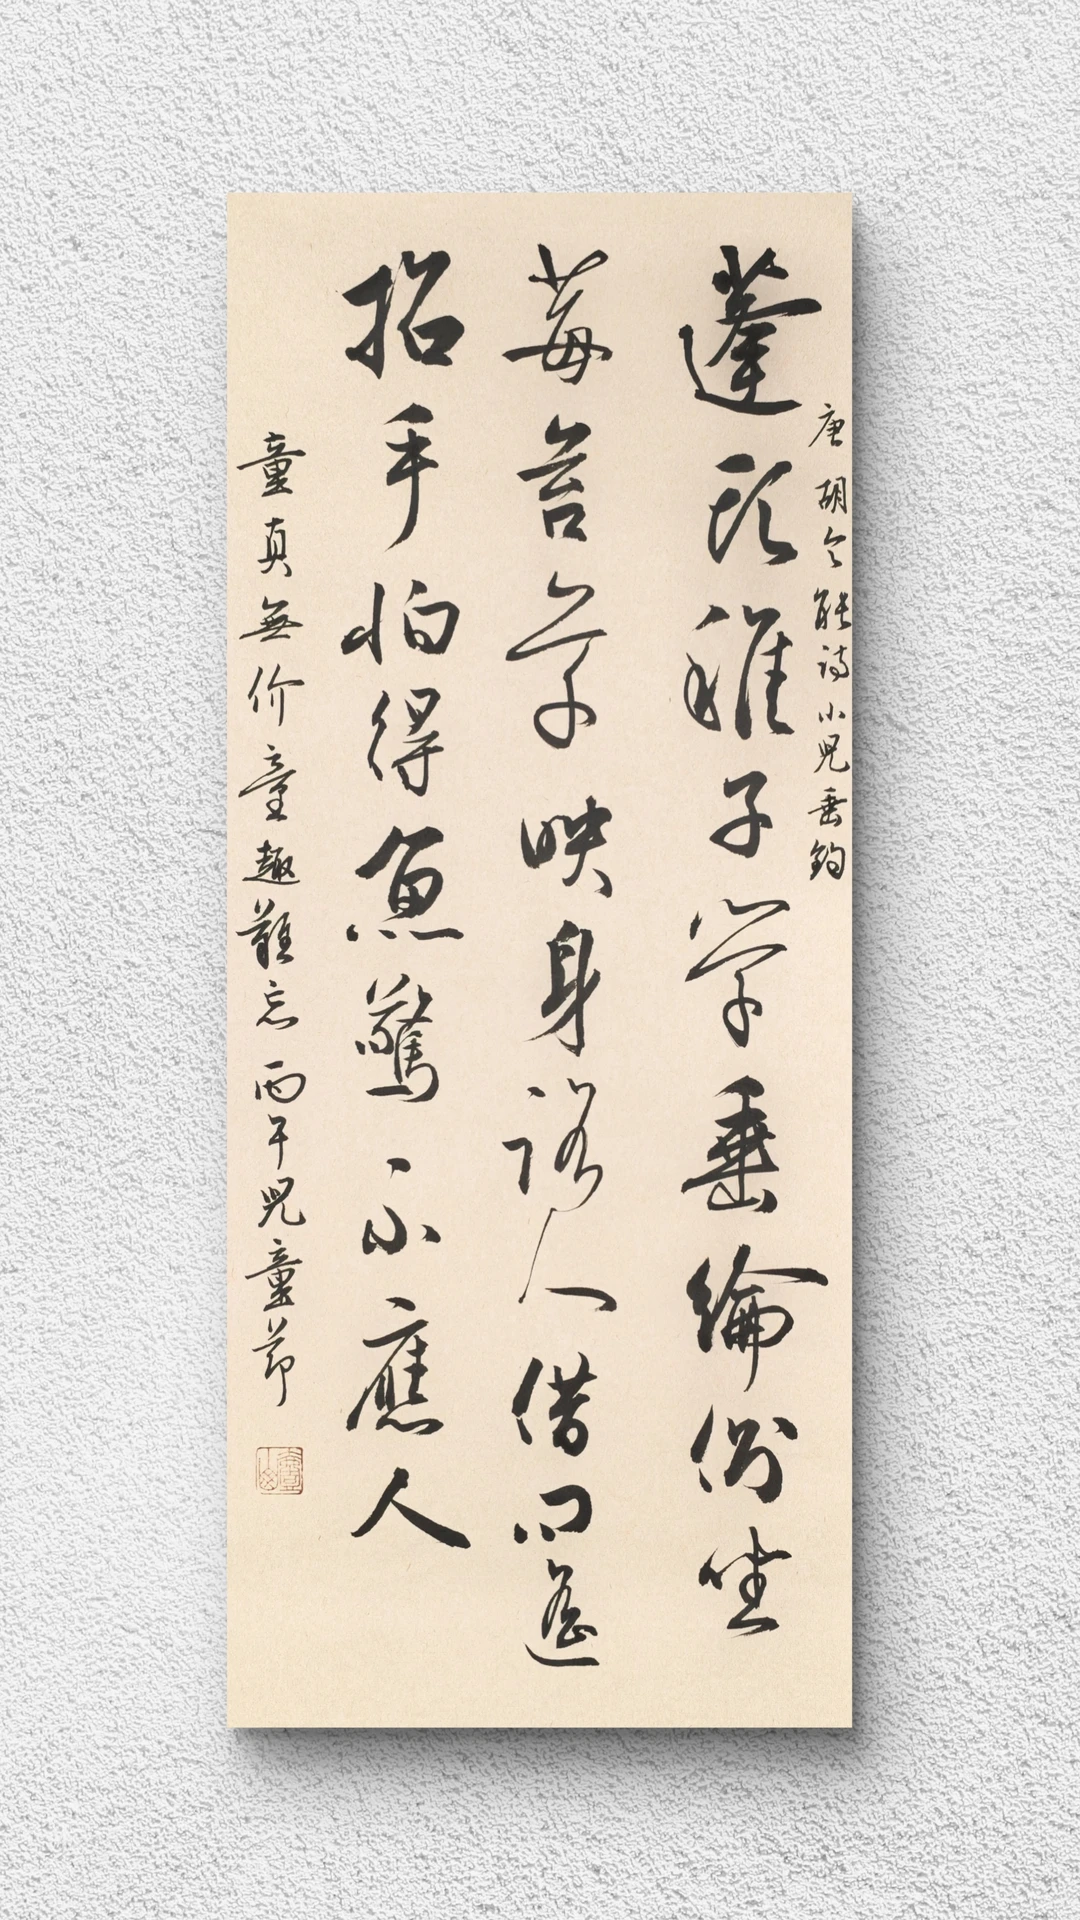 唐胡令能詩小兒垂鈎
蓬頭稚子學垂綸側坐
莓苔草映身路人借問遙
招手怕得魚驚不應人
童真無价童趣難忘丙午兒童節